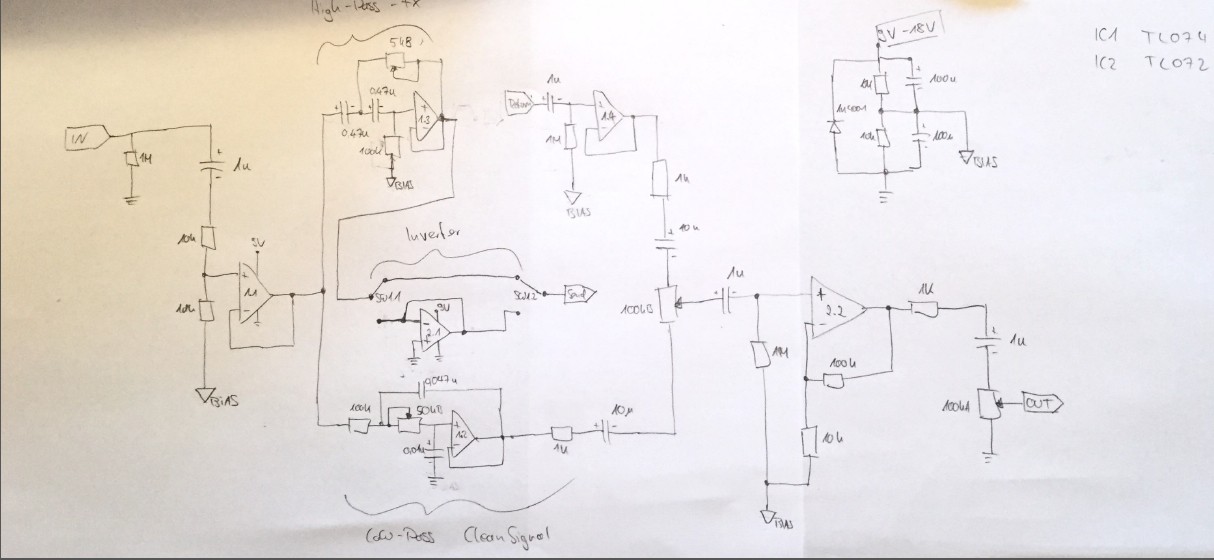 High-Pass-FX
IC1 TL074
IC2 TL072
9V-18V
50kB
0.47u
0.47u
100k
1.3
BIAS
Return
1u
1M
1.4
BIAS
1k
10u
1N4001
10k
100u
100u
BIAS
IN
1M
1u
10k
9V
1.1
BIAS
Inverter
SW1.1
SW1.2
Send
9V
2.1
100kB
1u
2.2
1K
1u
1M
100k
10k
100kA
OUT
BIAS
100k
0,047u
50kB
1.2
1k
10µ
Low-Pass Clean Signal